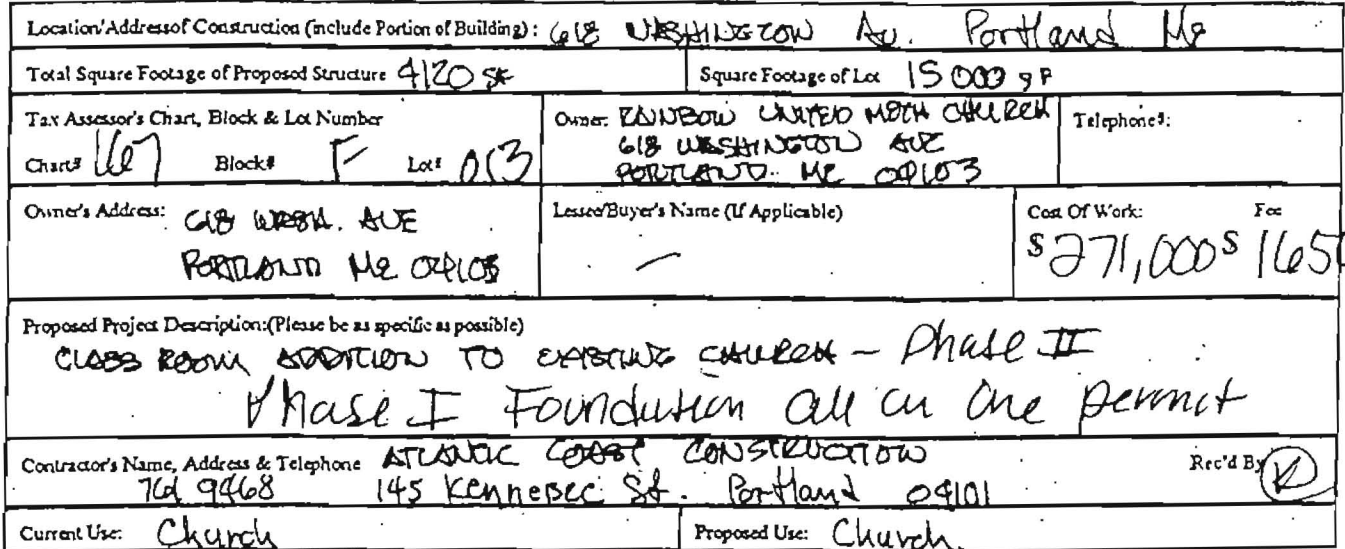 Location/Addressof Construction (include Portion of Building): 618 WASHINGTON Av. Portland Me
Total Square Footage of Proposed Structure 4120 SF Square Footage of Lot 15000 SF
Tax Assessor's Chart, Block & Lot Number
Chart# 167 Block# F Lot# 013
Owner: RAINBOW UNITED METH CHURCH
618 WASHINGTON AVE
PORTLAND ME 04103
Telephone#:
Owner's Address: 618 WASH. AVE
PORTLAND Me 04103
Lessee/Buyer's Name (If Applicable)
—
Cost Of Work: Fee
$271,000 $ 1650
Proposed Project Description:(Please be as specific as possible)
CLASS ROOM ADDITION TO EXISTING CHURCH - Phase II
Phase I Foundation all in One permit
Contractor's Name, Address & Telephone ATLANTIC COAST CONSTRUCTION Rec'd By K
761 9468 145 Kennebec St. Portland 04101
Current Use: Church Proposed Use: Church.